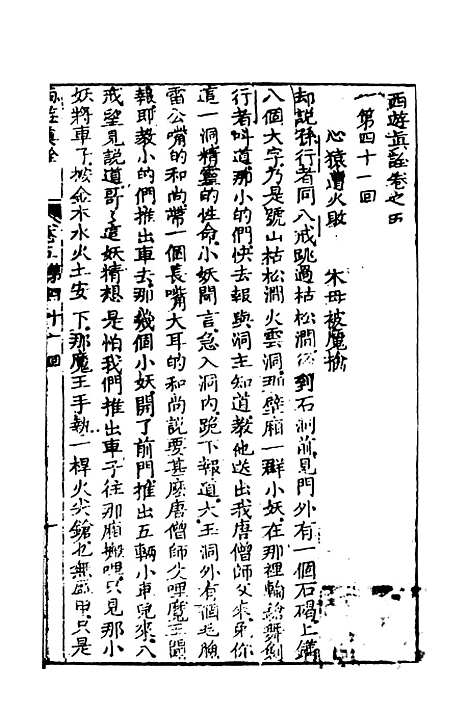 西遊真詮卷之五
第四十一回
心猿遭火敗 木母被魔擒
却說孫行者同八戒跳過枯松澗後到石洞前見門外有一個石碣上鐫
八個大字乃是號山枯松澗火雲洞那壁廂一群小妖在那裡輪鎗舞劍
行者叫道那小的們快去報與洞主知道教他送出我唐僧師父來免你
這一洞精靈的性命小妖聞言急入洞內跪下報道大王洞外有個毛臉
雷公嘴的和尚帶一個長嘴大耳的和尚說要甚麼唐僧師父哩魔王聞
報即教小的們推出車去那幾個小妖開了前門推出五輛小車兒來八
戒望見說道哥了這妖精想是怕我們推出車子往那廂搬哩只見那小
妖將車子按金木水火土安下那魔王手執一桿火尖鎗也無盔甲只是
西遊真詮 卷五第四十一回 一